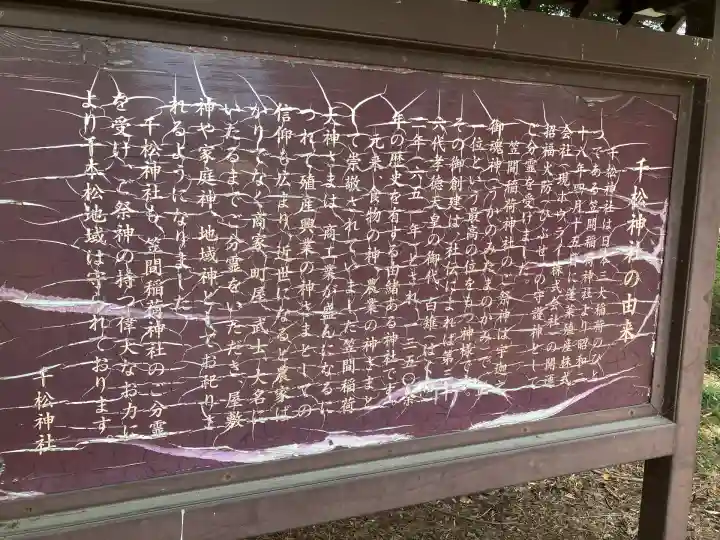 千松神社の由来
千松神社は日本三大稲荷のひと
つである笠間稲荷神社より昭和
十八年四月十五日に蓬莱殖産株式
会社(現ホウライ株式会社)の開運
招福火防(ひぶせ)の守護神として
ご分霊を受けました。
笠間稲荷神社のご祭神は宇迦之
御魂神(うかのみたまのかみ)で正
一位という最高の位をもつ神様です。
その御創建は、社伝によれば第三十
六代孝徳天皇の御代、白雉(はくち)
二年(六五一年)とされ、一三五〇余
年の歴史を有する由緒ある神社です。
元来、食物の神、農業の神さまと
して崇敬されてきました笠間稲荷
大神さまは、商工業が盛んになるに
つれて殖産興業の神さまとしての
信仰も広まり、近世になると農家ば
かりでなく商家、町屋、武士、大名に
いたるまでご分霊をいただき、屋敷
神や家庭神、地域神としてお祀りさ
れるようになりました。
千松神社も、笠間稲荷神社のご分霊
を受け、ご祭神の持つ偉大なお力に
より千本松地域は守られております
千松神社